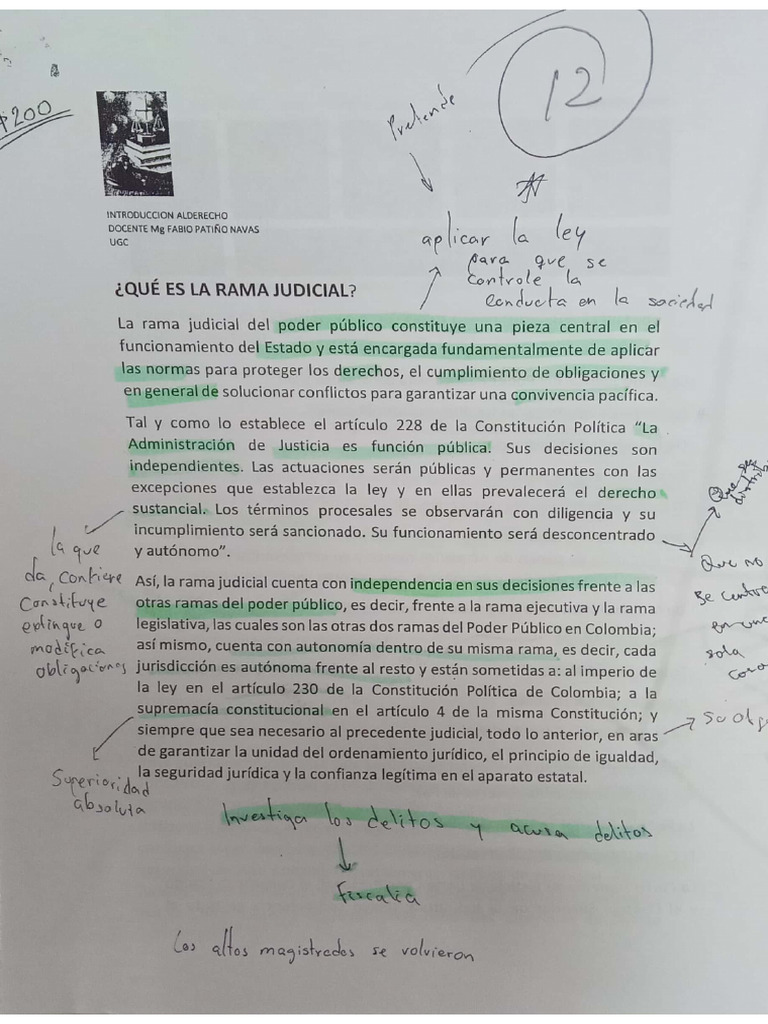 $200
12
Pretende
aplicar la ley
para que se
controle la
conducta en la sociedad
INTRODUCCION ALDERECHO
DOCENTE Mg FABIO PATIÑO NAVAS
UGC
¿QUÉ ES LA RAMA JUDICIAL?
La rama judicial del poder público constituye una pieza central en el
funcionamiento del Estado y está encargada fundamentalmente de aplicar
las normas para proteger los derechos, el cumplimiento de obligaciones y
en general de solucionar conflictos para garantizar una convivencia pacífica.
Tal y como lo establece el artículo 228 de la Constitución Política “La
Administración de Justicia es función pública. Sus decisiones son
independientes. Las actuaciones serán públicas y permanentes con las
excepciones que establezca la ley y en ellas prevalecerá el derecho
sustancial. Los términos procesales se observarán con diligencia y su
incumplimiento será sancionado. Su funcionamiento será desconcentrado
y autónomo”.
la que
da, contiene
Constituye
extingue o
modifica
obligaciones
Que no
se
sola
Así, la rama judicial cuenta con independencia en sus decisiones frente a las
otras ramas del poder público, es decir, frente a la rama ejecutiva y la rama
legislativa, las cuales son las otras dos ramas del Poder Público en Colombia;
así mismo, cuenta con autonomía dentro de su misma rama, es decir, cada
jurisdicción es autónoma frente al resto y están sometidas a: al imperio de
la ley en el artículo 230 de la Constitución Política de Colombia; a la
supremacía constitucional en el artículo 4 de la misma Constitución; y
siempre que sea necesario al precedente judicial, todo lo anterior, en aras
de garantizar la unidad del ordenamiento jurídico, el principio de igualdad,
la seguridad jurídica y la confianza legítima en el aparato estatal.
Superioridad
absoluta
Investiga los delitos y acusa delitos
Fiscalia
Los altos magistrados se volvieron